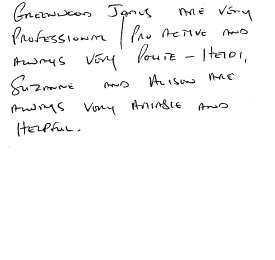 GREENWOOD JAMES ARE VERY
PROFESSIONAL / PRO ACTIVE AND
ALWAYS VERY POLITE - HEIDI,
SUZANNE AND ALISON ARE
ALWAYS VERY AMIABLE AND
HELPFUL.